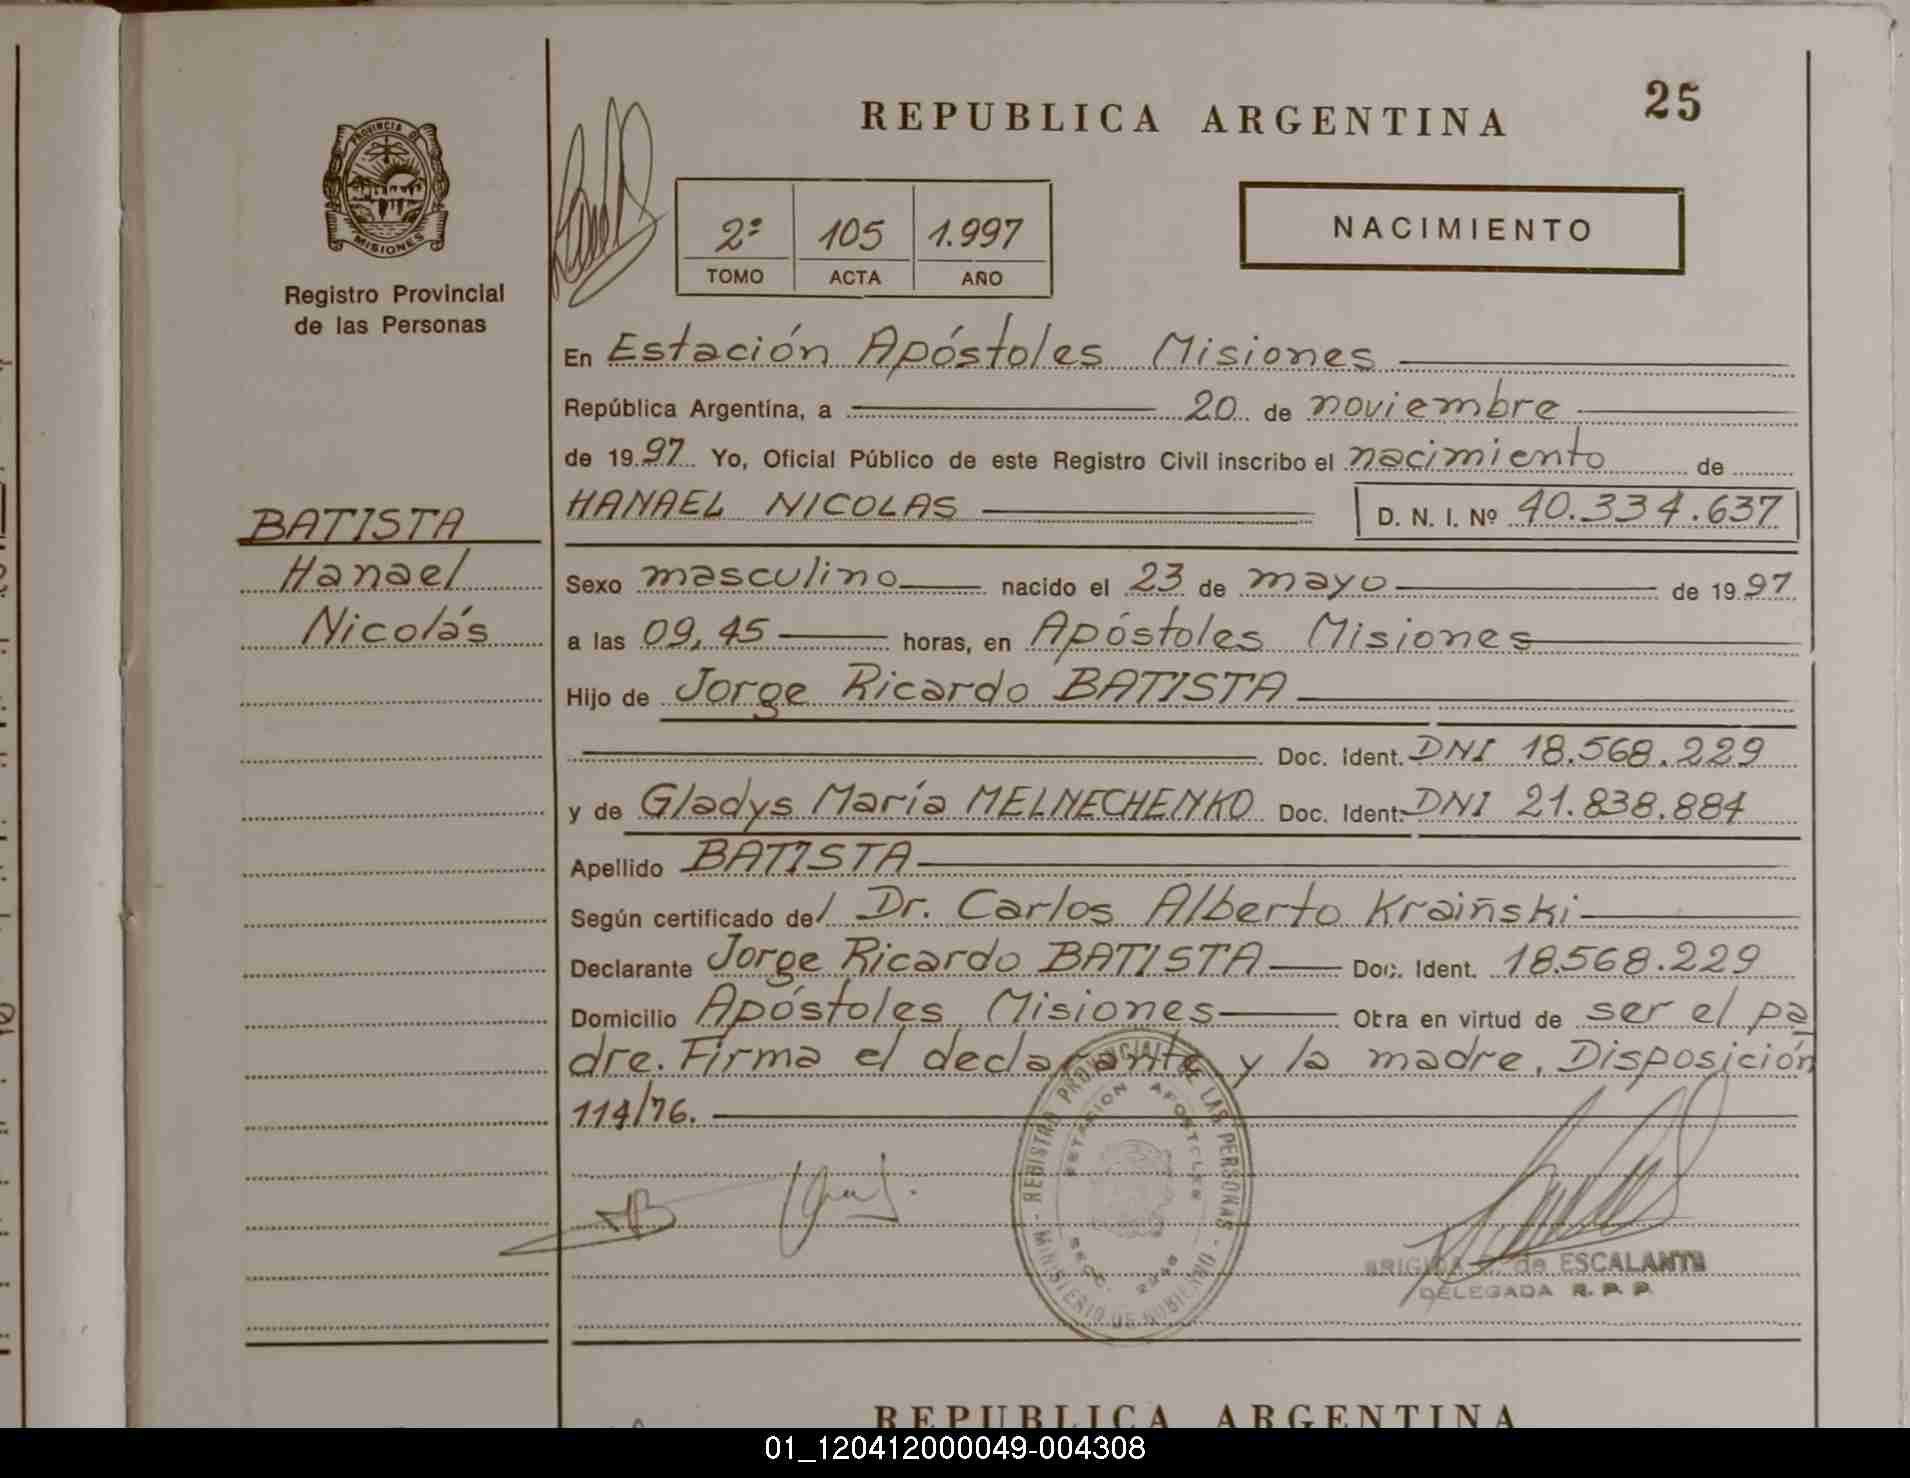 25
REPUBLICA ARGENTINA
PROVINCIA D
MISIONES
Registro Provincial
de las Personas
NACIMIENTO
2º 105 1.997
TOMO ACTA AÑO
En Estación Apóstoles Misiones
República Argentina, a 20 de noviembre
de 1997 Yo, Oficial Público de este Registro Civil inscribo el nacimiento de
HANAEL NICOLAS D. N. I. Nº 40.334.637
BATISTA
Hanael
Nicolás
Sexo masculino nacido el 23 de mayo de 1997
a las 09,45 horas, en Apóstoles Misiones
Hijo de Jorge Ricardo BATISTA
Doc. Ident. DNI 18.568.229
y de Gladys María MELNECHENKO Doc. Ident. DNI 21.838.884
Apellido BATISTA
Según certificado del Dr. Carlos Alberto Kraiñski
Declarante Jorge Ricardo BATISTA Doc. Ident. 18.568.229
Domicilio Apóstoles Misiones Obra en virtud de ser el pa
dre. Firma el declarante y la madre. Disposición
114/76.
REGISTRO PROVINCIAL DE LAS PERSONAS - MINISTERIO DE GOBIERNO -
ESTACION APOSTOLES
SECC.
de ESCALANTE
DELEGADA R. P. P.
REPUBLICA ARGENTINA
01_120412000049-004308